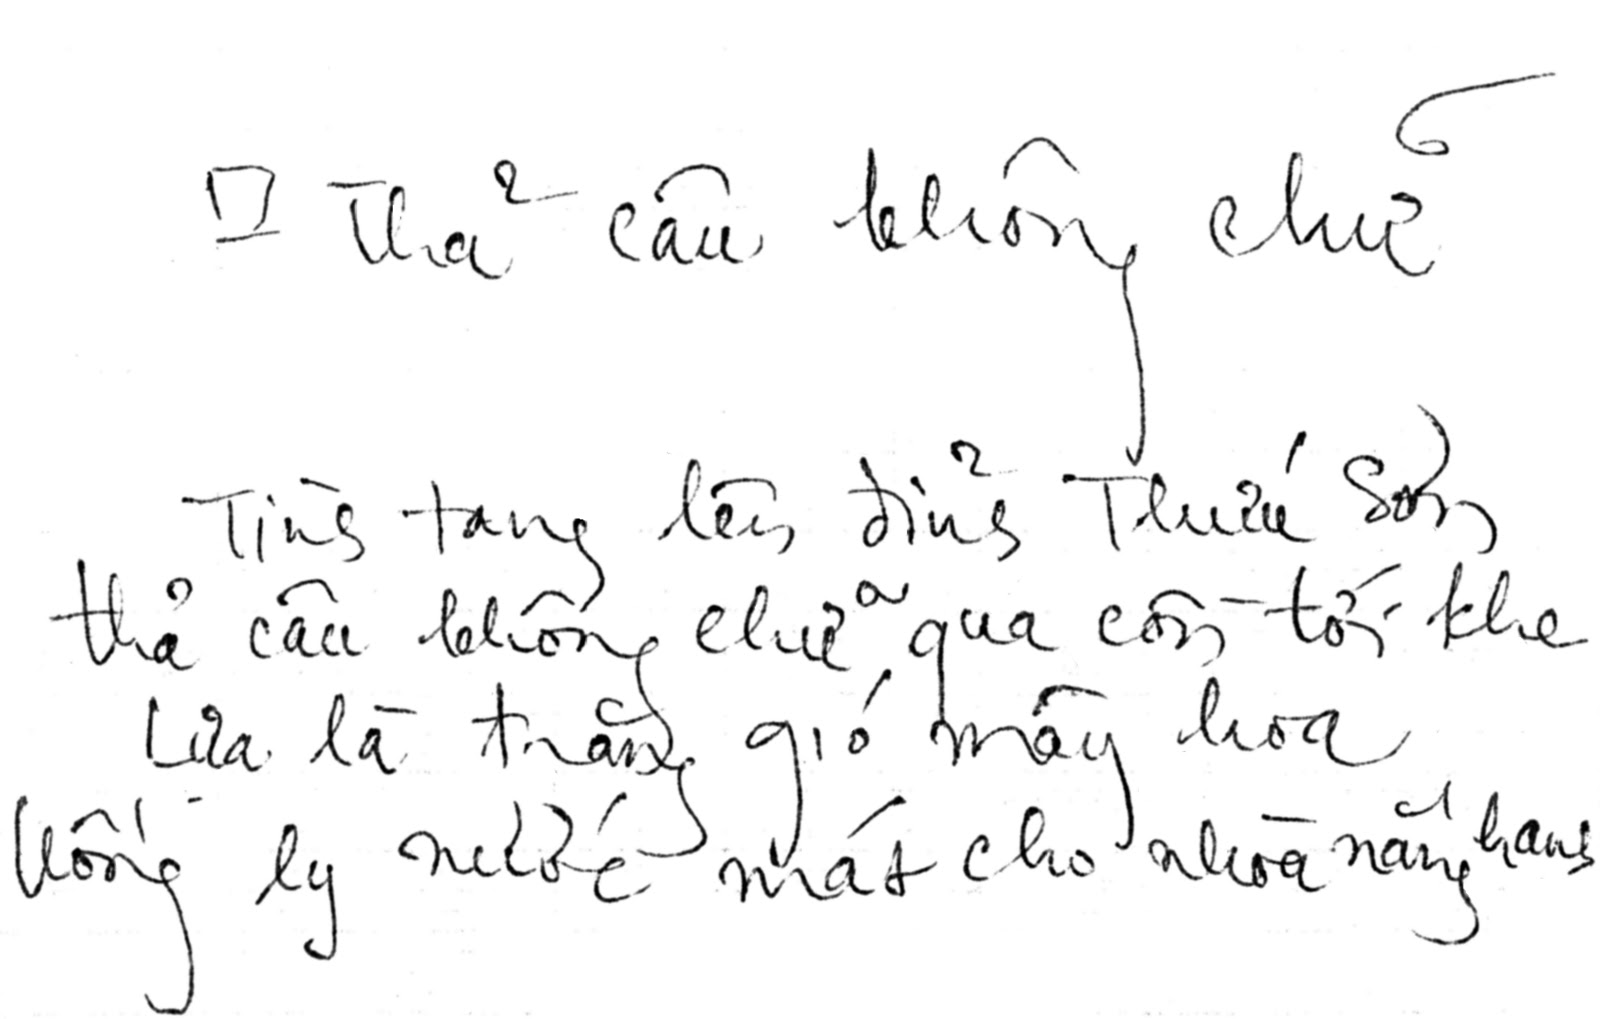 Thả câu không chữ
Tình tang lên đỉnh Thứu Sơn
thả câu không chữ qua cồn tới khe
Lưa là trăng gió mây hoa
Uống ly nước mát cho nhòa nắng hanh